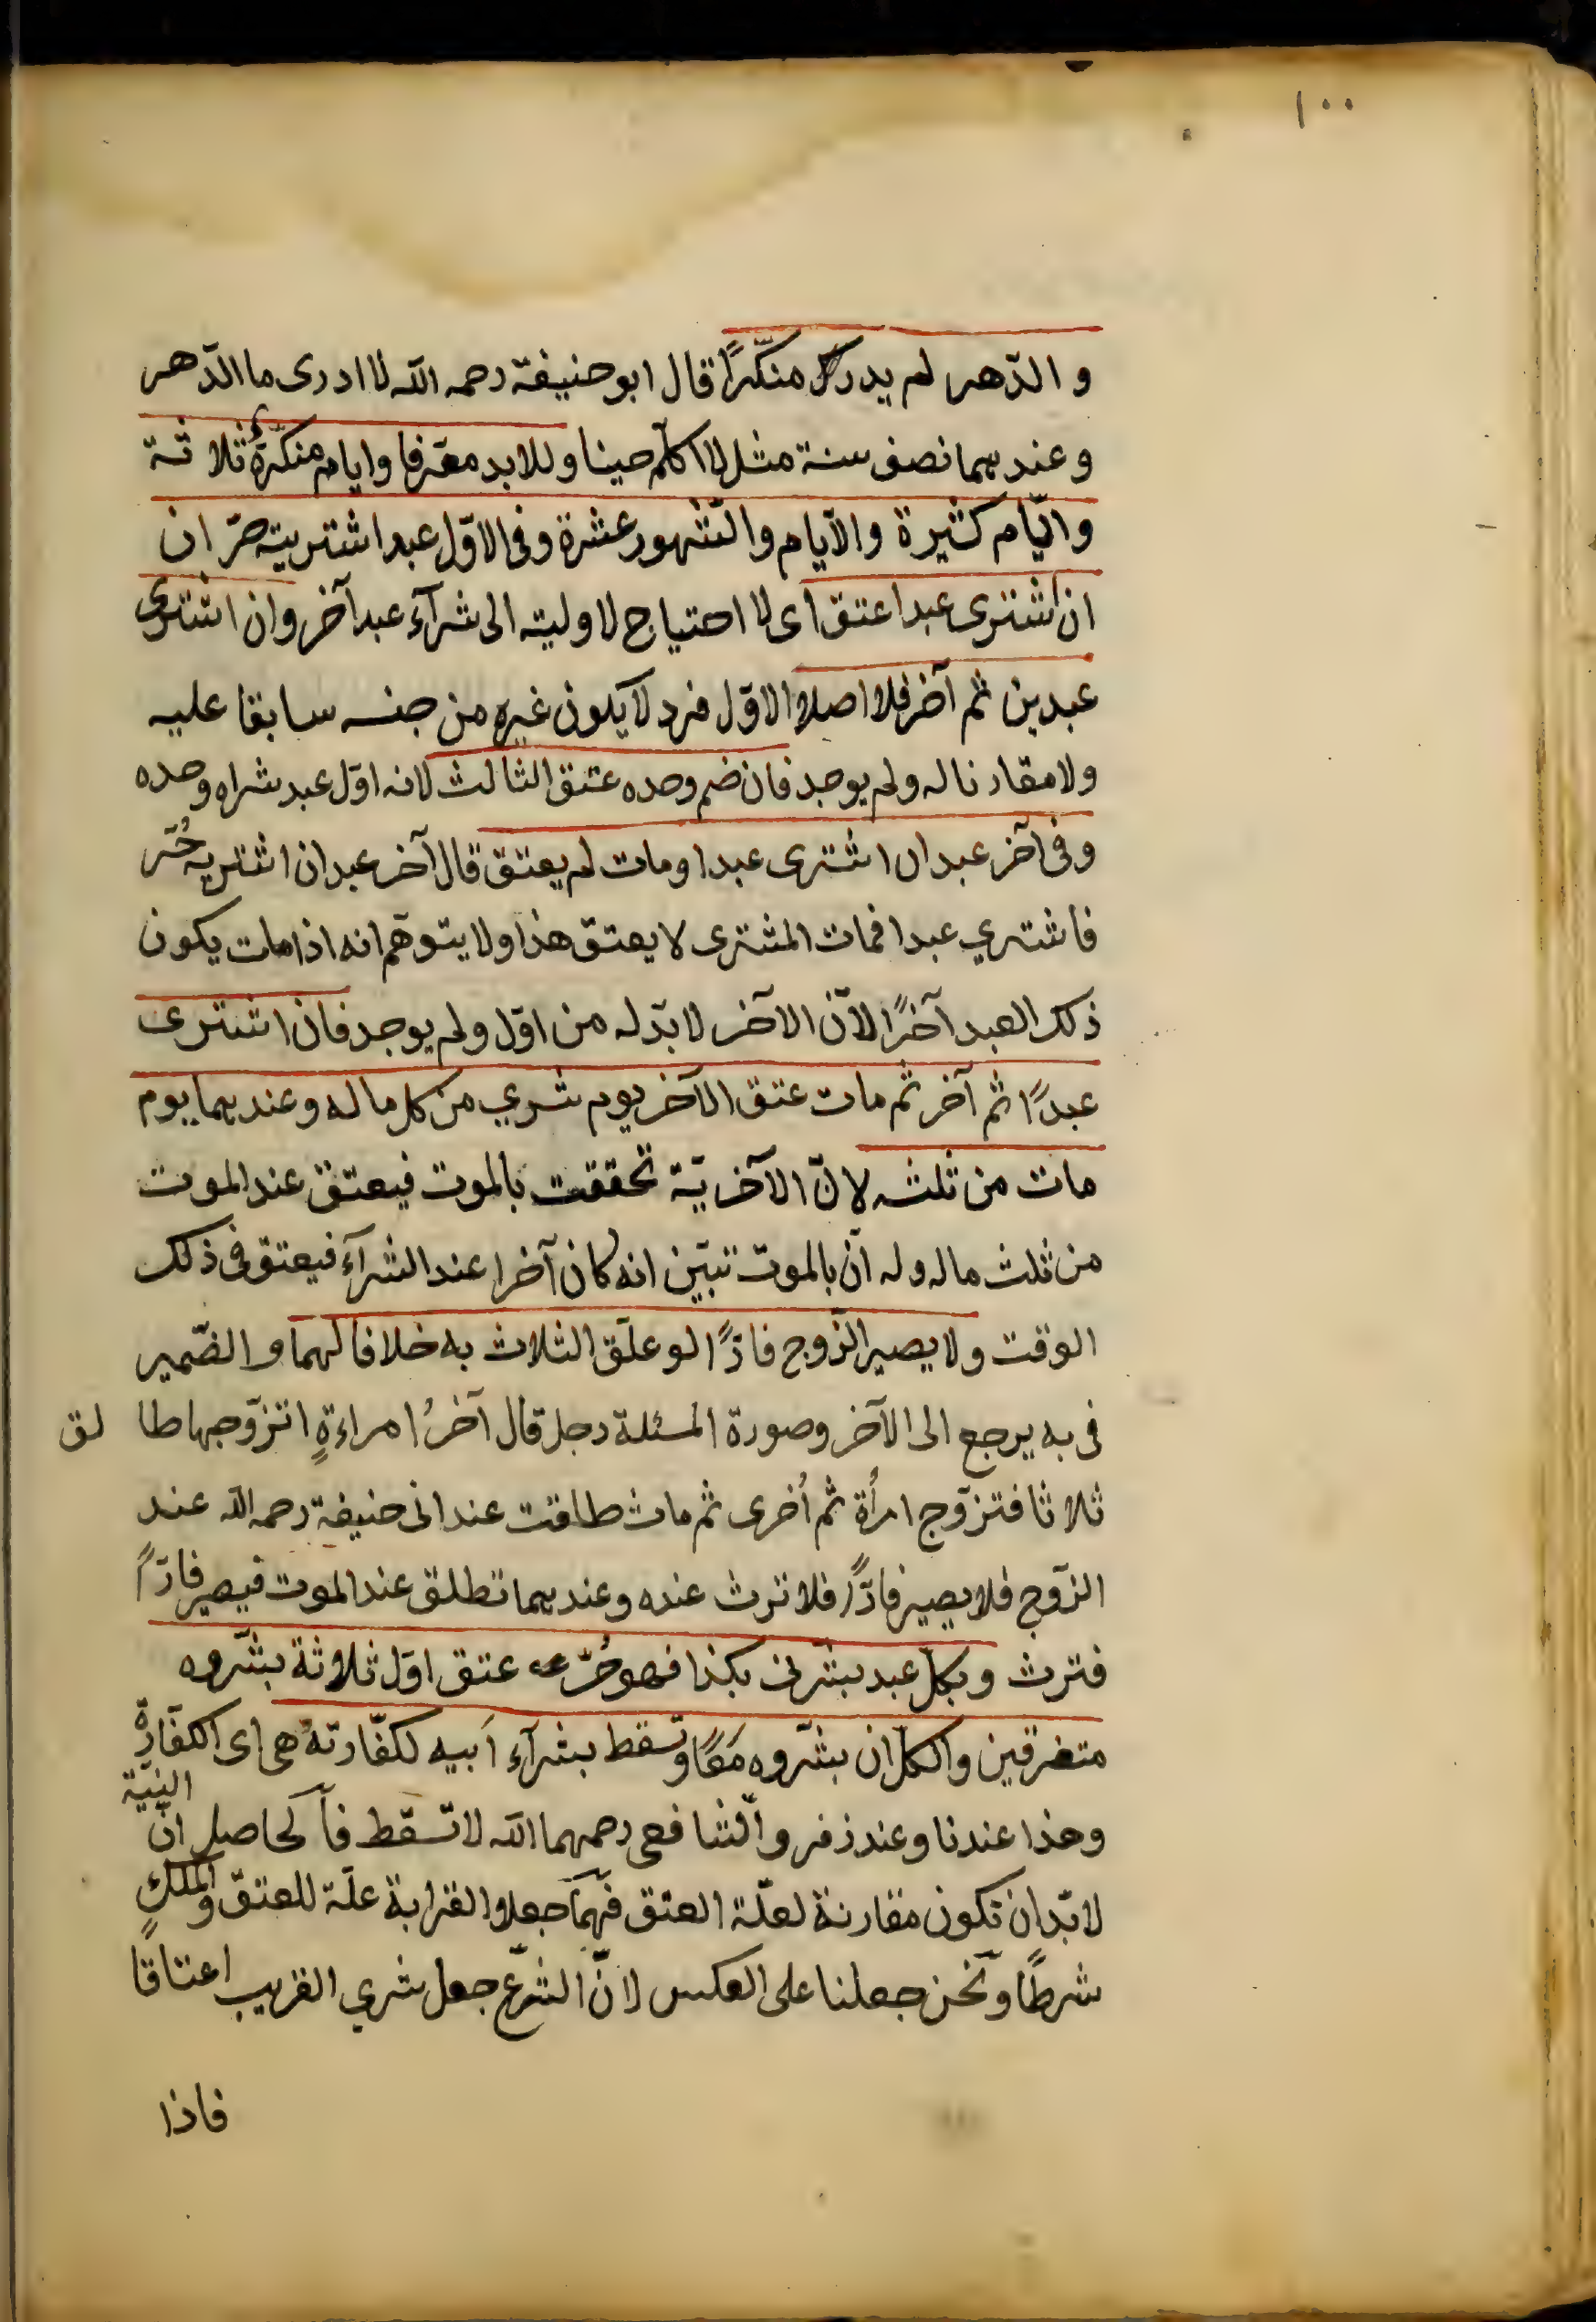 ١٠٠
و الدّهر لم يدر منكّرًا قال ابو حنيفة رحمه الله لا ادرى ما الدّهر
وعندهما نصف سنة مثل لا اكلّم حينا وللابد معرّفا وايام منكّرةً ثلاثة
وايّام كثيرة والايام والشّهور عشرة وفى الاوّل عبد اشتريته حرّ ان
ان اشترى عبدا عتق اى لا احتياج لاوليته الى شرآء عبد آخر وان اشترى
عبدين ثم آخر فلا اصلا الاوّل فرد لا يكون غيره من جنسه سابقا عليه
ولا مقارنا له ولم يوجد فان ضم وحده عتق الثالث لانه اوّل عبد شراه وحده
وفى آخر عبد ان اشترى عبدا ومات لم يعتق قال آخر عبد ان اشتريه حُرّ
فاشتري عبدا فمات المشترى لا يعتق هذا ولا يتوهّم انه اذا مات يكون
ذلك العبد آخرًا لانّ الآخر لا بدّ له من اوّل ولم يوجد فان اشترى
عبدًا ثم آخر ثم مات عتق الآخر يوم شري من كل ماله وعندهما يوم
مات من ثلثه لانّ الآخريّة تحققت بالموت فيعتق عند الموت
من ثلث ماله وله انّ بالموت تبيّن انه كان آخرا عند الشرآء فيعتق فى ذلك
الوقت ولا يصير الزّوج فارًّا لو علّق الثلاث به خلافا لهما والضّمير
فى به يرجع الى الآخر وصورة المسئلة رجل قال آخرُ امراءةٍ اتزوّجها طا لق
ثلاثا فتزوّج امرأة ثم أخرى ثم مات طلقت عند ابى حنيفة رحمه الله عند
الزّوج فلا يصير فارًّا فلا ترث عنده وعندهما تطلق عند الموت فيصير فارًّا
فترث وبكل عبد بشّرنى بكذا فهو حُرّ عتق اوّل ثلاثة بشّروه
متفرقين والكل ان بشّروه مَعًا وتسقط بشرآء اَبيه لكفّارته هى اى الكفّارةُ
وهذا عندنا وعند زفر والشافعى رحمهما الله لا تسقط فالحاصل انّ النيّة
لا بّد ان تكون مقارنة لعلّة العتق فهما جعلا القرابة علّة للعتق والملكِ
شرطًا ونحن جعلنا على العكس لانّ الشرع جعل شري القريب اعتاقًا
فاذا